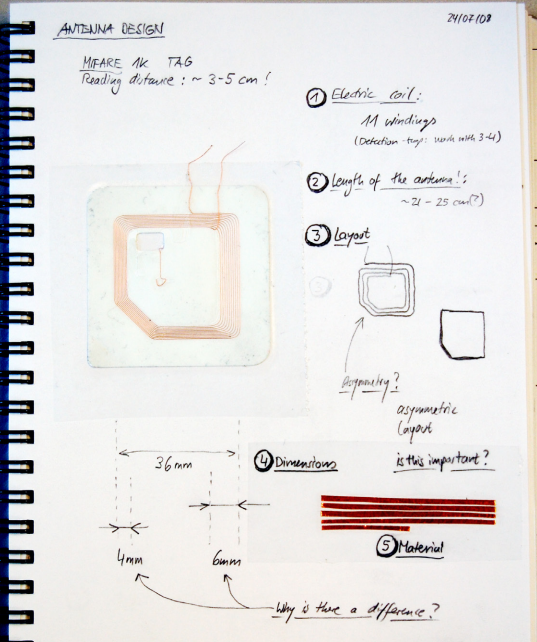 24/07/08
ANTENNA DESIGN
MIFARE 1K TAG
Reading distance: ~ 3-5 cm!
① Electric coil:
11 windings
(Detection-tags: work with 3-4)
② Length of the antenna!:
~21 - 25 cm(?)
③ Layout
Asymmetry?
asymmetric
layout
36mm
④ Dimensions
is this important?
⑤ Material
4mm
6mm
Why is there a difference?